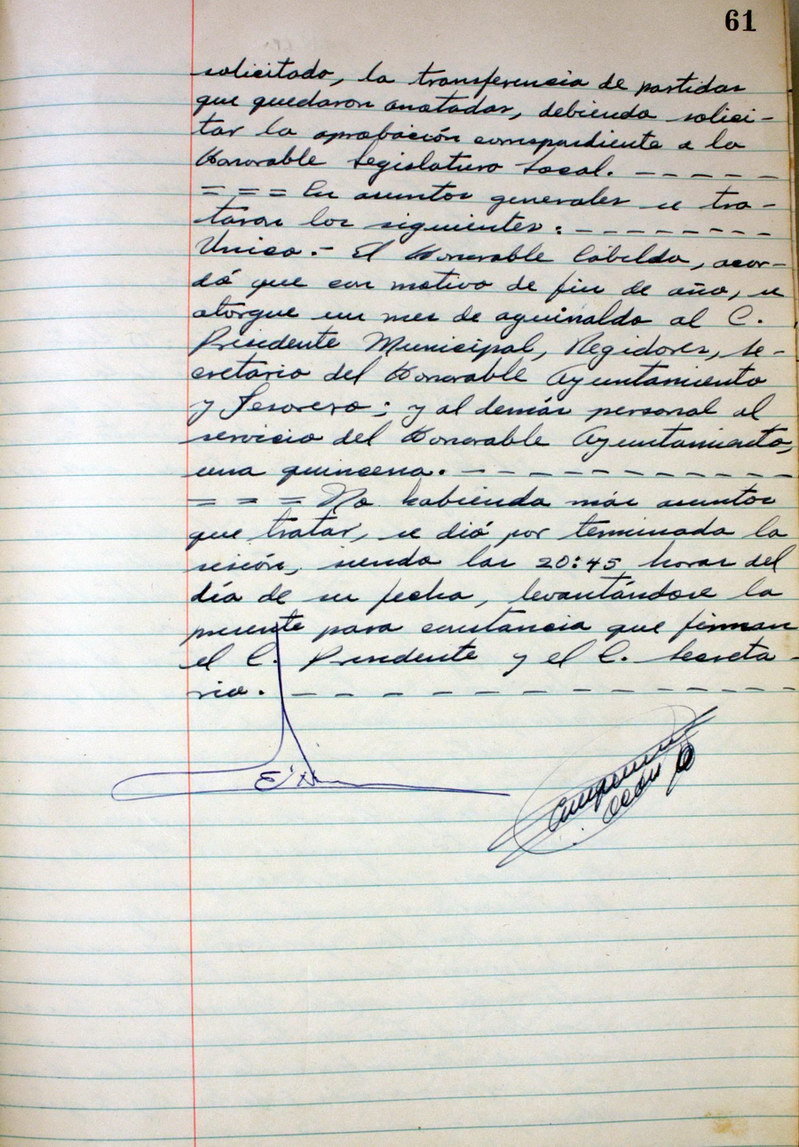 61
solicitado, la transferencia de partidas
que quedaron anotadas, debiendo solici-
tar la aprobación correspondiente a la
Honorable Legislatura Local. - - - - - -
= = = En asuntos generales se tra-
taron los siguientes: - - - - - - - -
Unico.- El Honorable Cabildo, acor-
dó que con motivo de fin de año, se
otorgue un mes de aguinaldo al C.
Presidente Municipal, Regidores, Se-
cretario del Honorable Ayuntamiento
y Tesorero; y al demás personal al
servicio del Honorable Ayuntamiento,
una quincena. - - - - - - - - - - - -
= = = No habiendo más asuntos
que tratar, se dió por terminada la
sesión, siendo las 20:45 horas del
día de su fecha, levantándose la
presente para constancia que firman
el C. Presidente y el C. Secreta-
rio. - - - - - - - - - - - - - - - - -